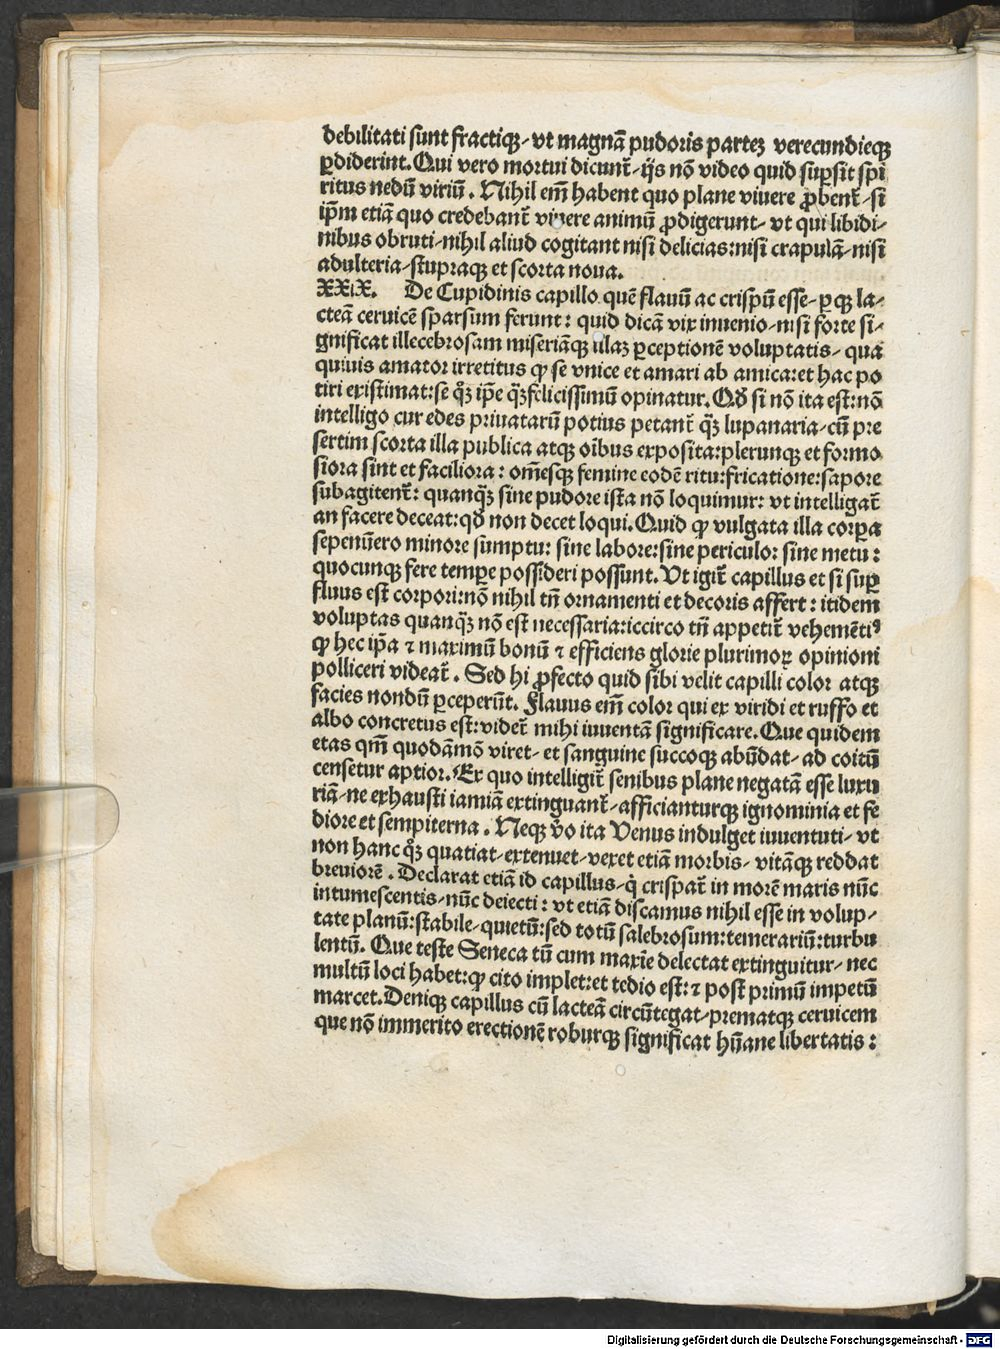 debilitati sunt fractiqꝫ⸗ vt magnā pudoris parteꝫ verecundieqꝫ
ꝑdiderint. Qui vero mortui dicunt᷑⸗ ijs nō video quid suꝑsit spi
ritus nedū viriū. Nihil em̄ habent quo plane viuere ꝓbent᷑⸗ si
ip̄m etiā quo credebant᷑ viuere animū ꝓdigerunt⸗ vt qui libidi⸗
nibus obruti⸗ nihil aliud cogitant nisi delicias: nisi crapulā⸗ nisi
adulteria⸗ stupraqꝫ et scorta noua.
XXIX. De Cupidinis capillo quē flauū ac crispū esse⸗ ꝑqꝫ la⸗
cteā ceruicē sparsum ferunt: quid dicā vix inuenio⸗ nisi forte si⸗
gnificat illecebrosam miseriāqꝫ illaꝫ ꝑceptionē voluptatis⸗ qua
quiuis amator irretitus ꝙ se vnice et amari ab amica: et hac po
tiri existimat: se qͦꝫ ip̄e qͣꝫ felicissimū opinatur. Qđ si nō ita est: nō
intelligo cur edes priuatarū potius petant᷑ qͣꝫ lupanaria⸗ cū pre
sertim scorta illa publica atqꝫ oībus exposita: plerunqꝫ et formo
siora sint et faciliora: om̄esqꝫ femine eodē ritu: fricatione: sapore
subagitent᷑: quanqͣꝫ sine pudore ista nō loquimur: vt intelligat᷑
an facere deceat: qđ non decet loqui. Quid ꝙ vulgata illa corꝑa
sepenūero minore sumptu: sine labore: sine periculo: sine metu:
quocunqꝫ fere temꝑe possideri possunt. Vt igit᷑ capillus et si suꝑ
fluus est corpori: nō nihil tn̄ ornamenti et decoris affert: itidem
voluptas quanqͣꝫ nō est necessaria: iccirco tn̄ appetit᷑ vehemētiꝰ
ꝙ hec ip̄a ⁊ maximū bonū ⁊ efficiens glorie plurimoꝝ opinioni
polliceri videat᷑. Sed hi ꝓfecto quid sibi velit capilli color atqꝫ
facies nondū ꝑceperūt. Flauus em̄ color qui ex viridi et ruffo et
albo concretus est: videt᷑ mihi iuuentā significare. Que quidem
etas qm̄ quodāmō viret⸗ et sanguine succoqꝫ abūdat⸗ ad coitū
censetur aptior. Ex quo intelligit᷑ senibus plane negatā esse luxu
riā⸗ ne exhausti iamiā extinguant᷑⸗ afficianturqꝫ ignominia et fe
diore et sempiterna. Neqꝫ v̊o ita Venus indulget iuuentuti⸗ vt
non hanc qͦꝫ quatiat⸗ extenuet⸗ vexet etiā morbis⸗ vitāqꝫ reddat
breuiorē. Declarat etiā id capillus⸗ q̇ crispat᷑ in morē maris nūc
intumescentis⸗ nūc deiecti: vt etiā discamus nihil esse in volup⸗
tate planū: stabile⸗ quietū: sed totū salebrosum: temerariū: turbu
lentū. Que teste Seneca tū cum maxīe delectat extinguitur⸗ nec
multū loci habet: ꝙ cito implet: et tedio est: ⁊ post primū impetū
marcet. Deniqꝫ capillus cū lacteā circūtegat⸗ prematqꝫ ceruicem
que nō immerito erectionē roburqꝫ significat hūane libertatis:
Digitalisierung gefördert durch die Deutsche Forschungsgemeinschaft - DFG